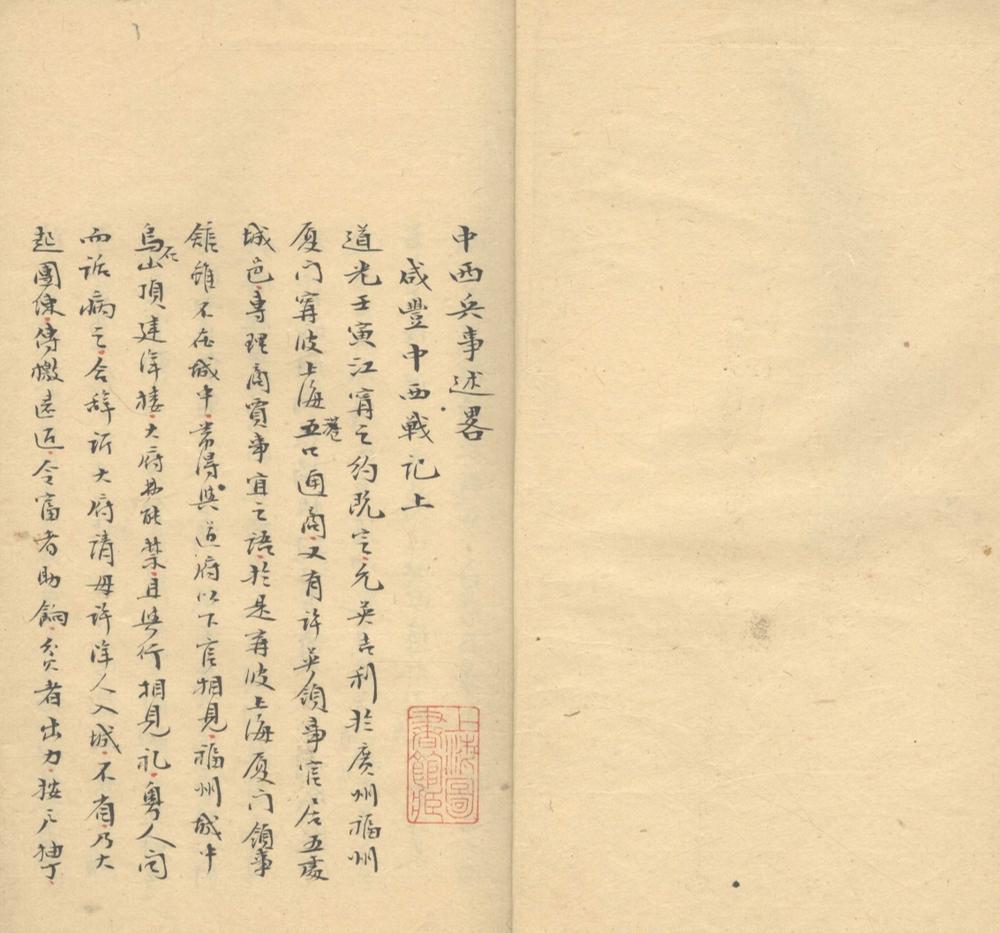 中西兵事述畧
咸豐中西戰記上
道光壬寅江甯之約既定允英吉利於廣州福州
厦门甯波上海五口通商又有许英领事官居五處
港
城邑專理商賈事宜之語於是甯波上海厦门领事
館雖不在城中常得與道府以下官相見福州城中
烏山頂建洋楼大府弗能禁且與行相見礼粤人闻
石
而詬病之合辞訴大府請毋许洋人入城不省乃大
起團练傳檄遠近令富者助餉贫者出力按户抽丁
上海圖書館藏